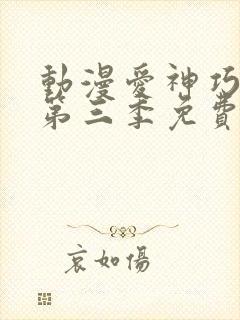 動漫愛神巧
第三季免費
哀如傷